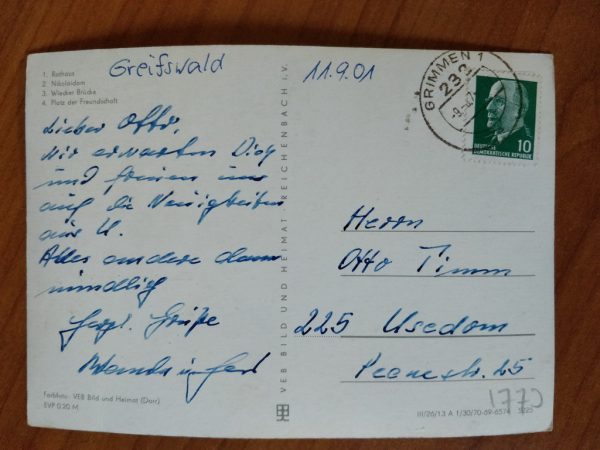 Greifswald
11.9.01
1. Rathaus
2. Nikolaidom
3. Wiecker Brücke
4. Platz der Freundschaft
Lieber Otto,
wir erwarten Dich
und freuen uns
auf die Neuigkeiten
aus U.
Alles andere dann
mündlich
Herzl. Grüße
Wanda
Farbfoto: VEB Bild und Heimat (Darr)
EVP 0,20 M
VEB BILD UND HEIMAT REICHENBACH i. V.
GRIMMEN 1
232
10
DEUTSCHE
DEMOKRATISCHE REPUBLIK
Herrn
Otto Timm
225 Usedom
Peenestr. 25
III/26/13 A 1/30/70-69-6574
1770